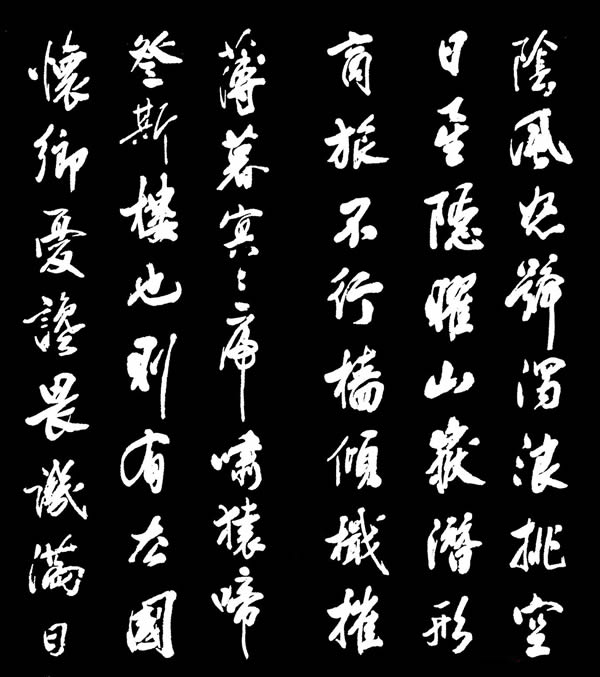 陰風怒號濁浪排空
日星隱曜山嶽潛形
商旅不行檣傾檝摧
薄暮冥々虎嘯猿啼
登斯樓也則有去國
懷鄉憂讒畏譏滿目